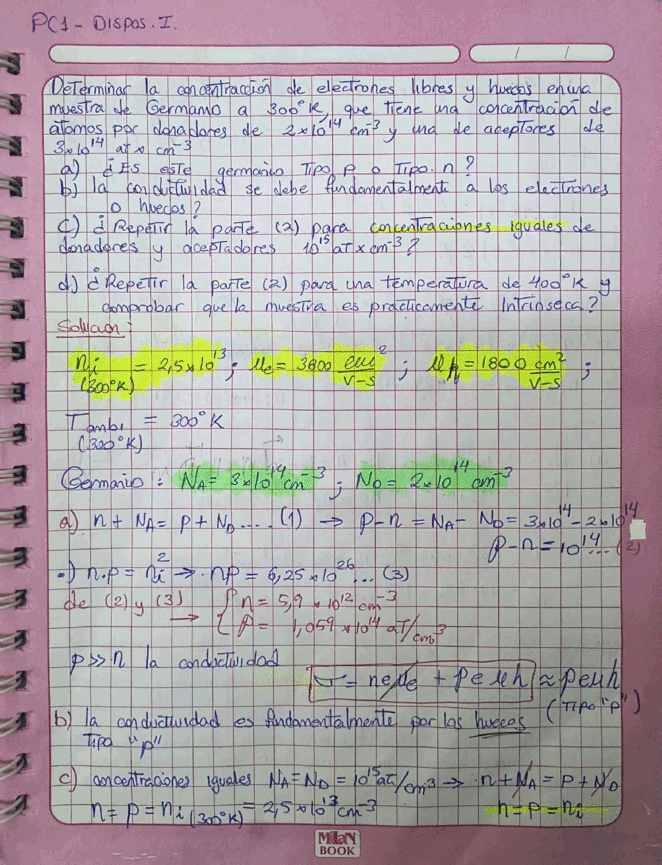 PC1 - Dispos. I.
Determinar la concentración de electrones libres y huecos en una
muestra de Germanio a 300°K, que tiene una concentración de
átomos por donadores de 2x10¹⁴ cm⁻³ y una de aceptores de
3x10¹⁴ at x cm⁻³
a) ¿ES este germanio Tipo p o Tipo. n?
b) la conductividad se debe fundamentalmente a los electrones
o huecos?
c) ¿Repetir la parte (2) para concentraciones iguales de
donadores y aceptadores 10¹⁵ aT x cm⁻³?
d) ¿Repetir la parte (2) para una temperatura de 400°K y
comprobar que la muestra es prácticamente Intrínseca?
Solución:
ni (300°K) = 2,5x10¹³; μe = 3800 cm²/V-s; μh = 1800 cm²/V-s;
Tambi (300°K) = 300°K
Germanio: NA = 3x10¹⁴ cm⁻³; ND = 2x10¹⁴ cm⁻³
a) n + NA = p + ND .... (1) → p-n = NA - ND = 3x10¹⁴ - 2x10¹⁴
p-n = 10¹⁴... (2)
-) n.p = ni² → np = 6,25x10²⁶ ... (3)
de (2) y (3) → { n = 5,9 x 10¹² cm⁻³
p = 1,059 x 10¹⁴ aT/cm³
p >> n la conductividad
σ = neμe + peμh ≈ peμh
(Tipo "p")
b) la conductividad es fundamentalmente por los huecos
Tipo "p"
c) concentraciones iguales NA = ND = 10¹⁵ at/cm³ → n + NA = p + ND
n = p = ni (300°K) = 2,5x10¹³ cm⁻³ n = p = ni
MILAN
BOOK